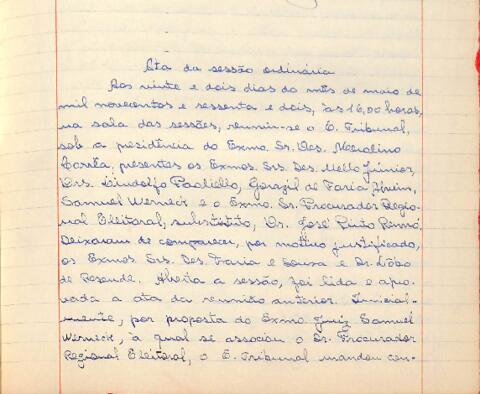 Ata da sessão ordinária
Aos vinte e dois dias do mês de maio de
mil novecentos e sessenta e dois, às 16,00 horas,
na sala das sessões, reuniu-se o E. Tribunal,
sob a presidência do Exmo. Sr. Des.
Corrêa, presentes os Exmos. Srs. Des. Mello Júnior,
Drs. Lindolfo Paoliello, de Faria Alvim,
Samuel Werneck e o Exmo. Sr. Procurador Regio-
nal Eleitoral, substituto, Dr. José Pinto Renó.
Deixaram de comparecer, por motivo justificado,
os Exmos. Srs. Des. Faria e Souza e Dr. Lôbo
de Resende. Aberta a sessão, foi lida e apro-
vada a ata da reunião anterior. Inicial-
mente, por proposta do Exmo. Juiz Samuel
Werneck, a qual se associou o Sr. Procurador
Regional Eleitoral, o E. Tribunal mandou con-